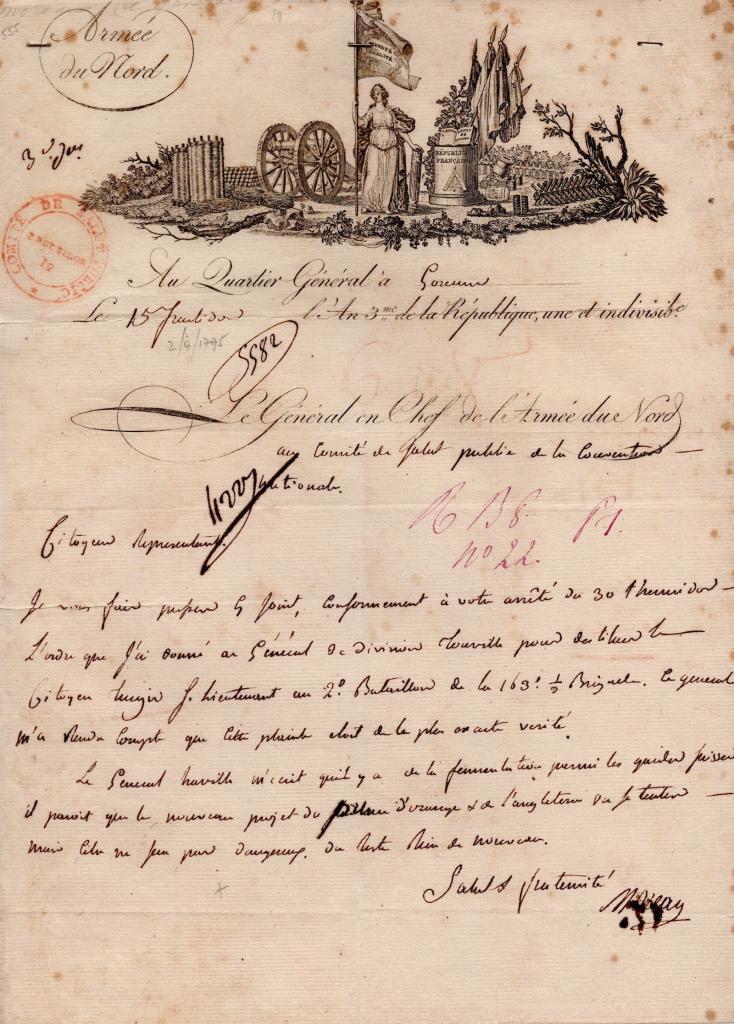 Armée
du Nord.
LIBERTÉ
ÉGALITÉ
RÉPUBLIQUE
FRANÇAISE
COMITÉ DE SALUT PUBLIC
Au Quartier Général à
Le 15 fructidor l'An 3.me de la République, une et indivisible
2/9/1795
5582
Le Général en Chef de l'Armée du Nord
au Comité de Salut public de la Convention
nationale.
R B8 P1.
nº 22.
Citoyens Representants.
Je vous fais passer Ci Joint, Conformement à votre arrêté du 30 thermidor
L'ordre que J'ai donné au Général de division pour destituer le
Citoyen S. Lieutenant au 2.e Bataillon de la 163.e ½ Brigade. Ce general
m'a Rendu Compte que Cette plainte etoit de la plus exacte verité.
Le General m'ecrit qu'il y a de la fermentation parmi les
il paroit que le nouveau projet du d'orange & de l'angleterre va se tenter
mais Cela ne sera pas dangereux. du Reste Rien de nouveau.
Salut & fraternité
Moreau